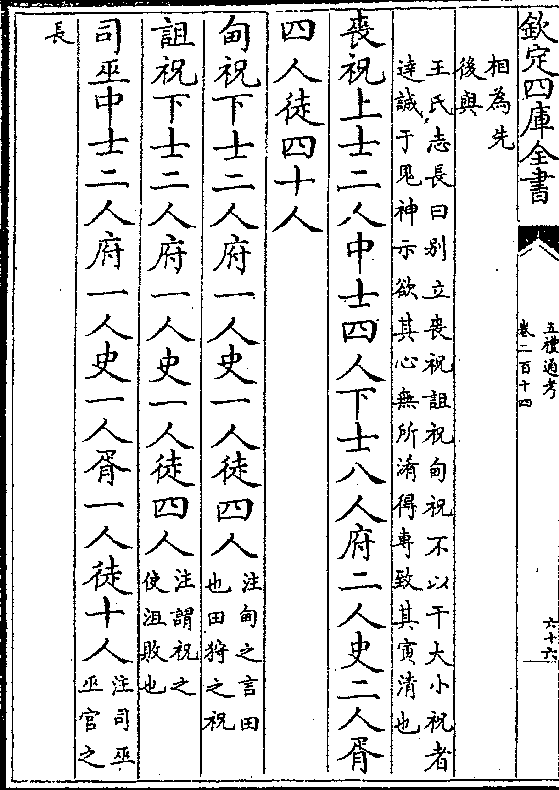 欽定四庫全書
五禮通考
卷二百十四
六十六
相為先
後與
王氏志長曰別立喪祝詛祝甸祝不以干大小祝者
達誠于鬼神示欲其心無所淆得専致其寅清也
喪祝上士二人中士四人下士八人府二人史二人胥
四人徒四十人
甸祝下士二人府一人史一人徒四人
注甸之言田
也田狩之祝
詛祝下士二人府一人史一人徒四人
注謂祝之
使沮敗也
司巫中士二人府一人史一人胥一人徒十人
注司巫
巫官之
長